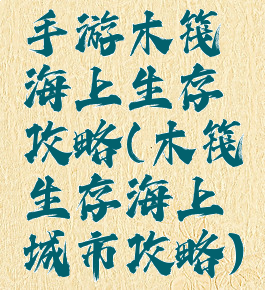 手游木筏
海上生存
攻略(木筏
生存海上
城市攻略)